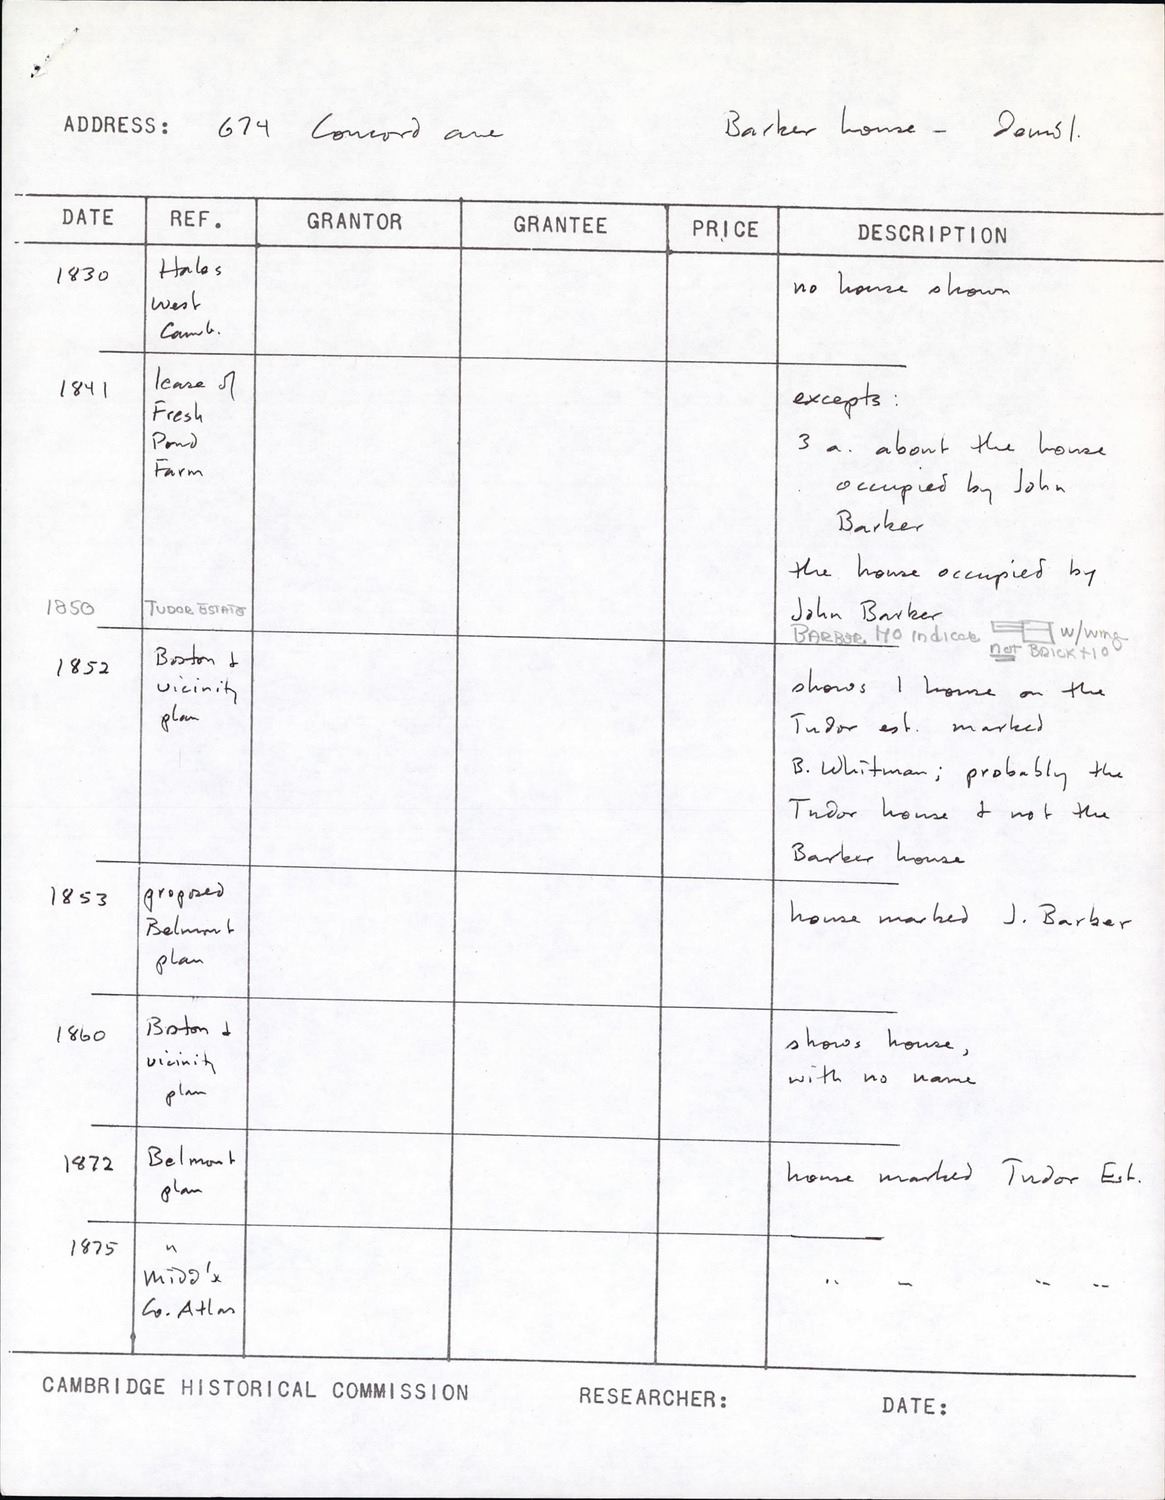 ADDRESS: 674 Concord ave Barker house - Demol.
DATE REF. GRANTOR GRANTEE PRICE DESCRIPTION
1830 Hales
West
Camb.
no house shown
1841 lease of
Fresh
Pond
Farm
excepts:
3 a. about the house
occupied by John
Barker
the house occupied by
John Barker
1850 TUDOR ESTATE
BARBOR HO indicae w/wing
not BRICK +10
1852 Boston &
vicinity
plan
shows 1 house on the
Tudor est. marked
B. Whitman; probably the
Tudor house & not the
Barker house
1853 proposed
Belmont
plan
house marked J. Barber
1860 Boston &
vicinity
plan
shows house,
with no name
1872 Belmont
plan
house marked Tudor Est.
1875 "
Midd'x
Co. Atlas
" " " "
CAMBRIDGE HISTORICAL COMMISSION RESEARCHER: DATE: